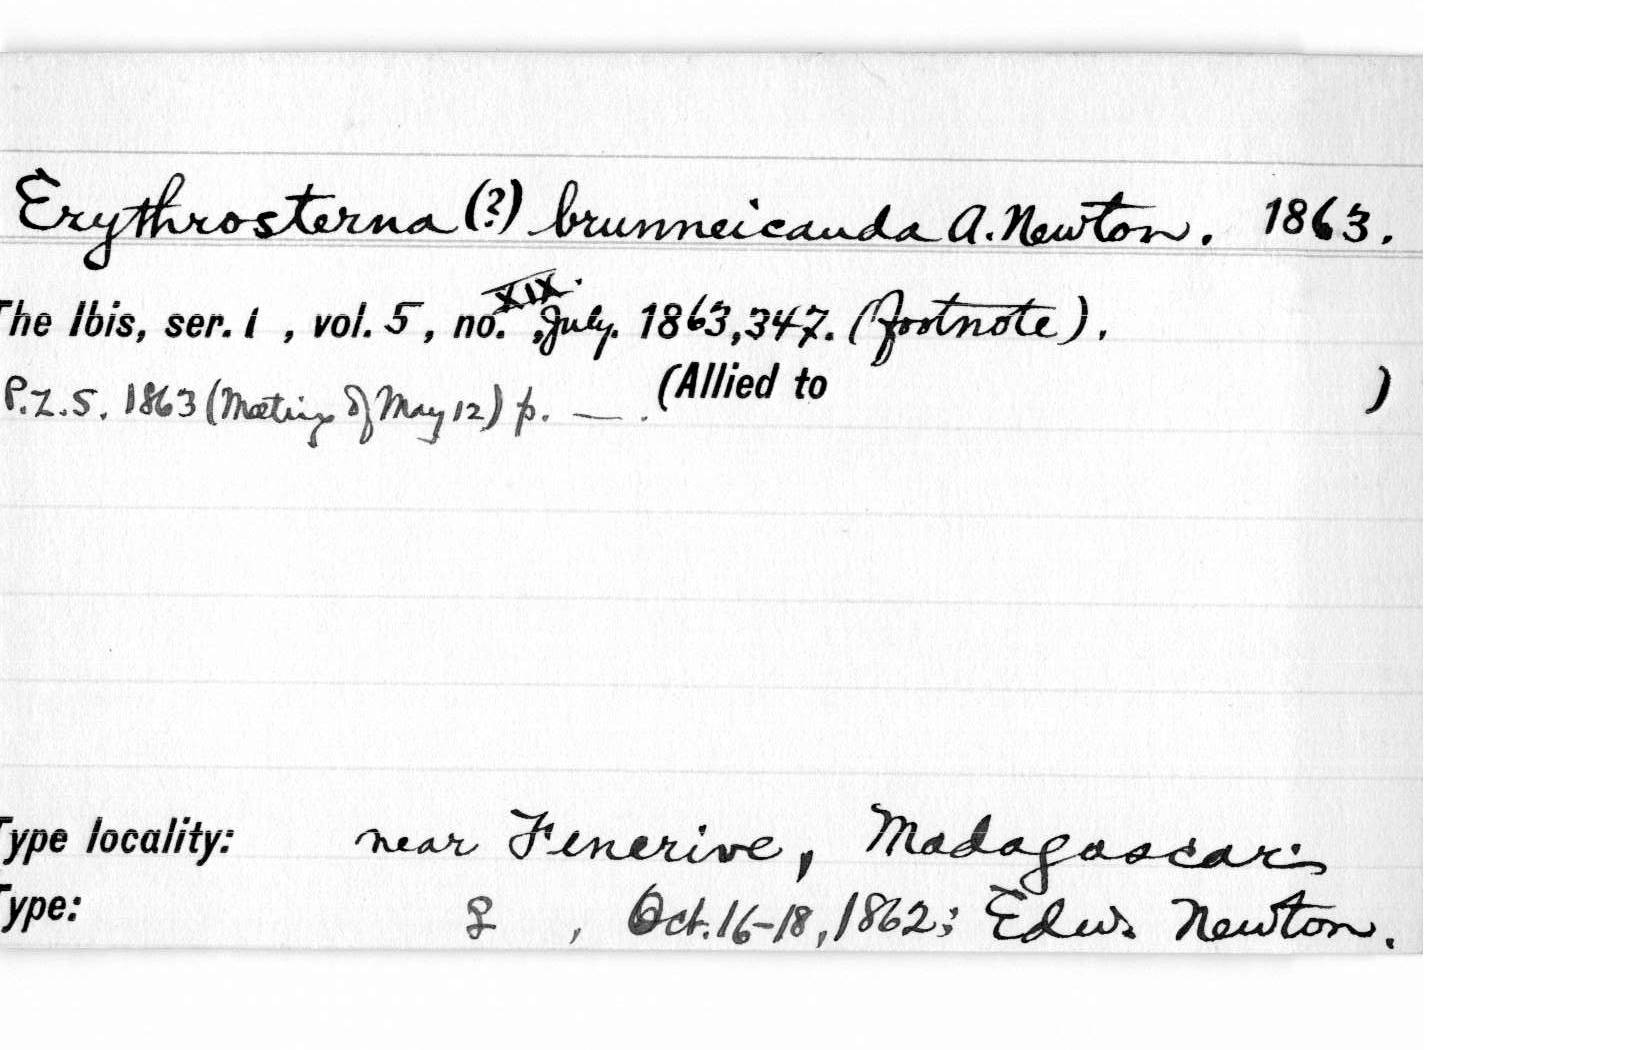 Erythrosterna (?) brunneicauda A. Newton. 1863.
The Ibis, ser. 1, vol. 5, no. XIX., July. 1863, 347. (footnote).
P.Z.S. 1863 (Meeting of May 12) p. — . (Allied to )
Type locality: near Fenerive, Madagascar;
Type: ♀ , Oct. 16-18, 1862; Edw. Newton.